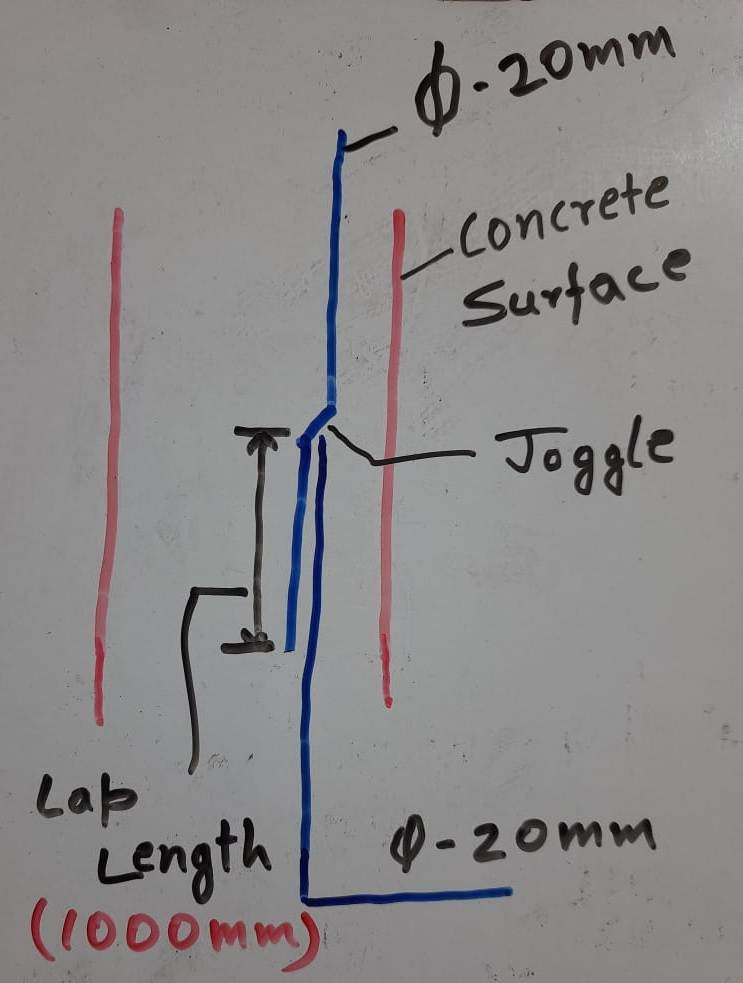 ϕ-20mm
Concrete
Surface
Joggle
Lap
Length
(1000mm)
ϕ-20mm